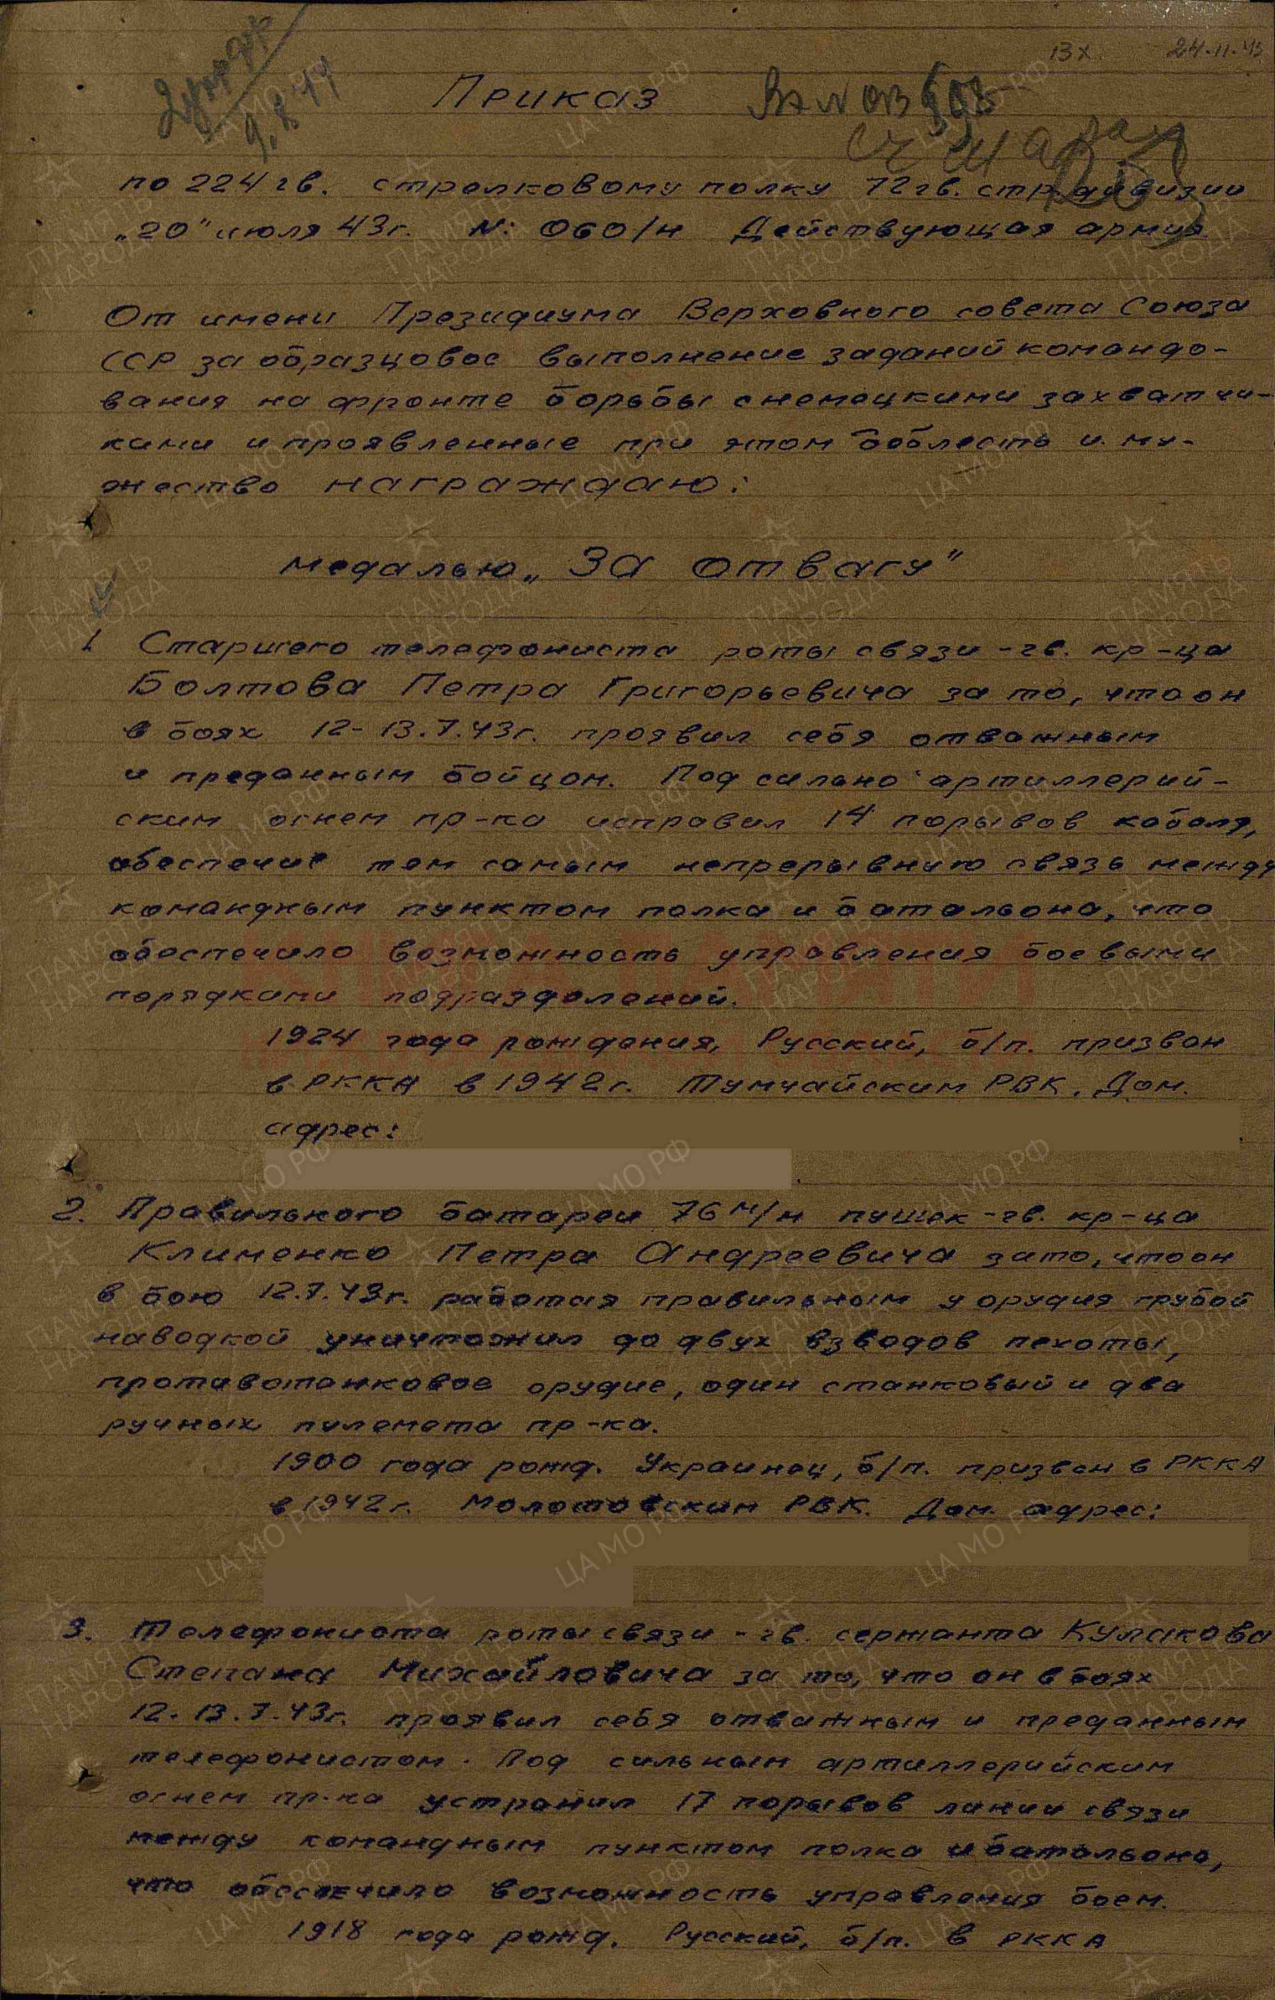 13х 24-11-43
9.8.44
Приказ
по 224 гв. стрелковому полку 72 гв. стр. дивизии
„20" июля 43г. №: 060/н Действующая армия
От имени Президиума Верховного совета Союза
ССР за образцовое выполнение заданий командо-
вания на фронте борьбы с немецкими захватчи-
ками и проявленные при этом доблесть и му-
жество награждаю:
медалью „За отвагу"
1. Старшего телефониста роты связи - гв. кр-ца
Болтова Петра Григорьевича за то, что он
в боях 12-13.7.43г. проявил себя отважным
и преданным бойцом. Под сильно артиллерий-
ским огнем пр-ка исправил 14 порывов кабеля,
обеспечив тем самым непрерывную связь между
командным пунктом полка и батальона, что
обеспечило возможность управления боевыми
порядками подразделений.
1924 года рождения, Русский, б/п. призван
в РККА в 1942г. Тумчайским РВК. Дом.
адрес:
2. Правильного батареи 76 м/м пушек - гв. кр-ца
Клименко Петра Андреевича за то, что он
в бою 12.7.43г. работая правильным у орудия грубой
наводкой уничтожил до двух взводов пехоты,
противотанковое орудие, один станковый и два
ручных пулемета пр-ка.
1900 года рожд. Украинец, б/п. призван в РККА
в 1942г. Молотовским РВК. Дом. адрес:
3. Телефониста роты связи - гв. сержанта Кулакова
Степана Михайловича за то, что он в боях
12-13.7.43г. проявил себя отважным и преданным
телефонистом. Под сильным артиллерийским
огнем пр-ка устранил 17 порывов линии связи
между командным пунктом полка и батальона,
что обеспечило возможность управления боем.
1918 года рожд. Русский, б/п. в РККА